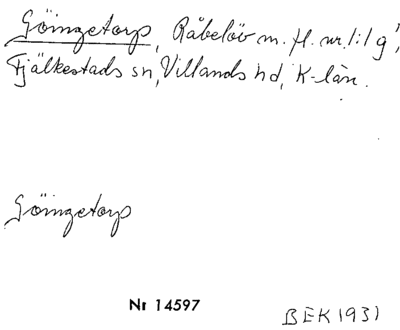 Göingetorp, Råbelöv m. fl. nr 1:1 g¹,
Fjälkestads sn, Villands hd, K-län.
Göingetorp
Nr 14597
BEK 1931